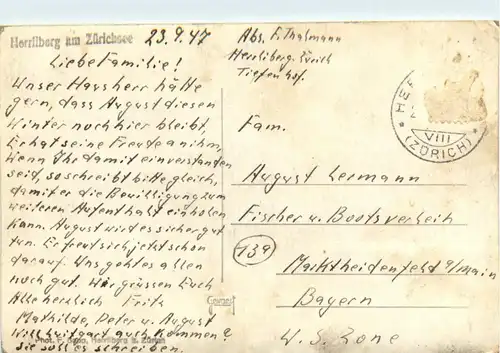 Herrliberg am Zürichsee
23.9.47
Liebe Familie!
Unser Hausherr hätte
gern, dass August diesen
Winter noch hier bleibt,
Er hat seine Freude an ihm,
Wenn Ihr damit einverstanden
seid, so schreibt bitte gleich,
damit er die Bewilligung zum
weiteren Aufenthalt einholen
kann. August wird es sicher gut
tun. Er freut sich jetzt schon
darauf. Uns geht es allen
noch gut. Wir grüssen Euch
Alle herzlich Fritz
Mathilde, Peter u. August
Will Luitgart auch kommen?
sie soll es schreiben.
Phot. F. Herrliberg b. Zürich
Gevaert
Abs. F. Thalmann
Herrliberg-Zürich
Tiefenhof.
VIII
(ZÜRICH)
Fam.
August Lermann
Fischer u. Bootsverleih
13a
Marktheidenfeld a/main
Bayern
U.S. Zone